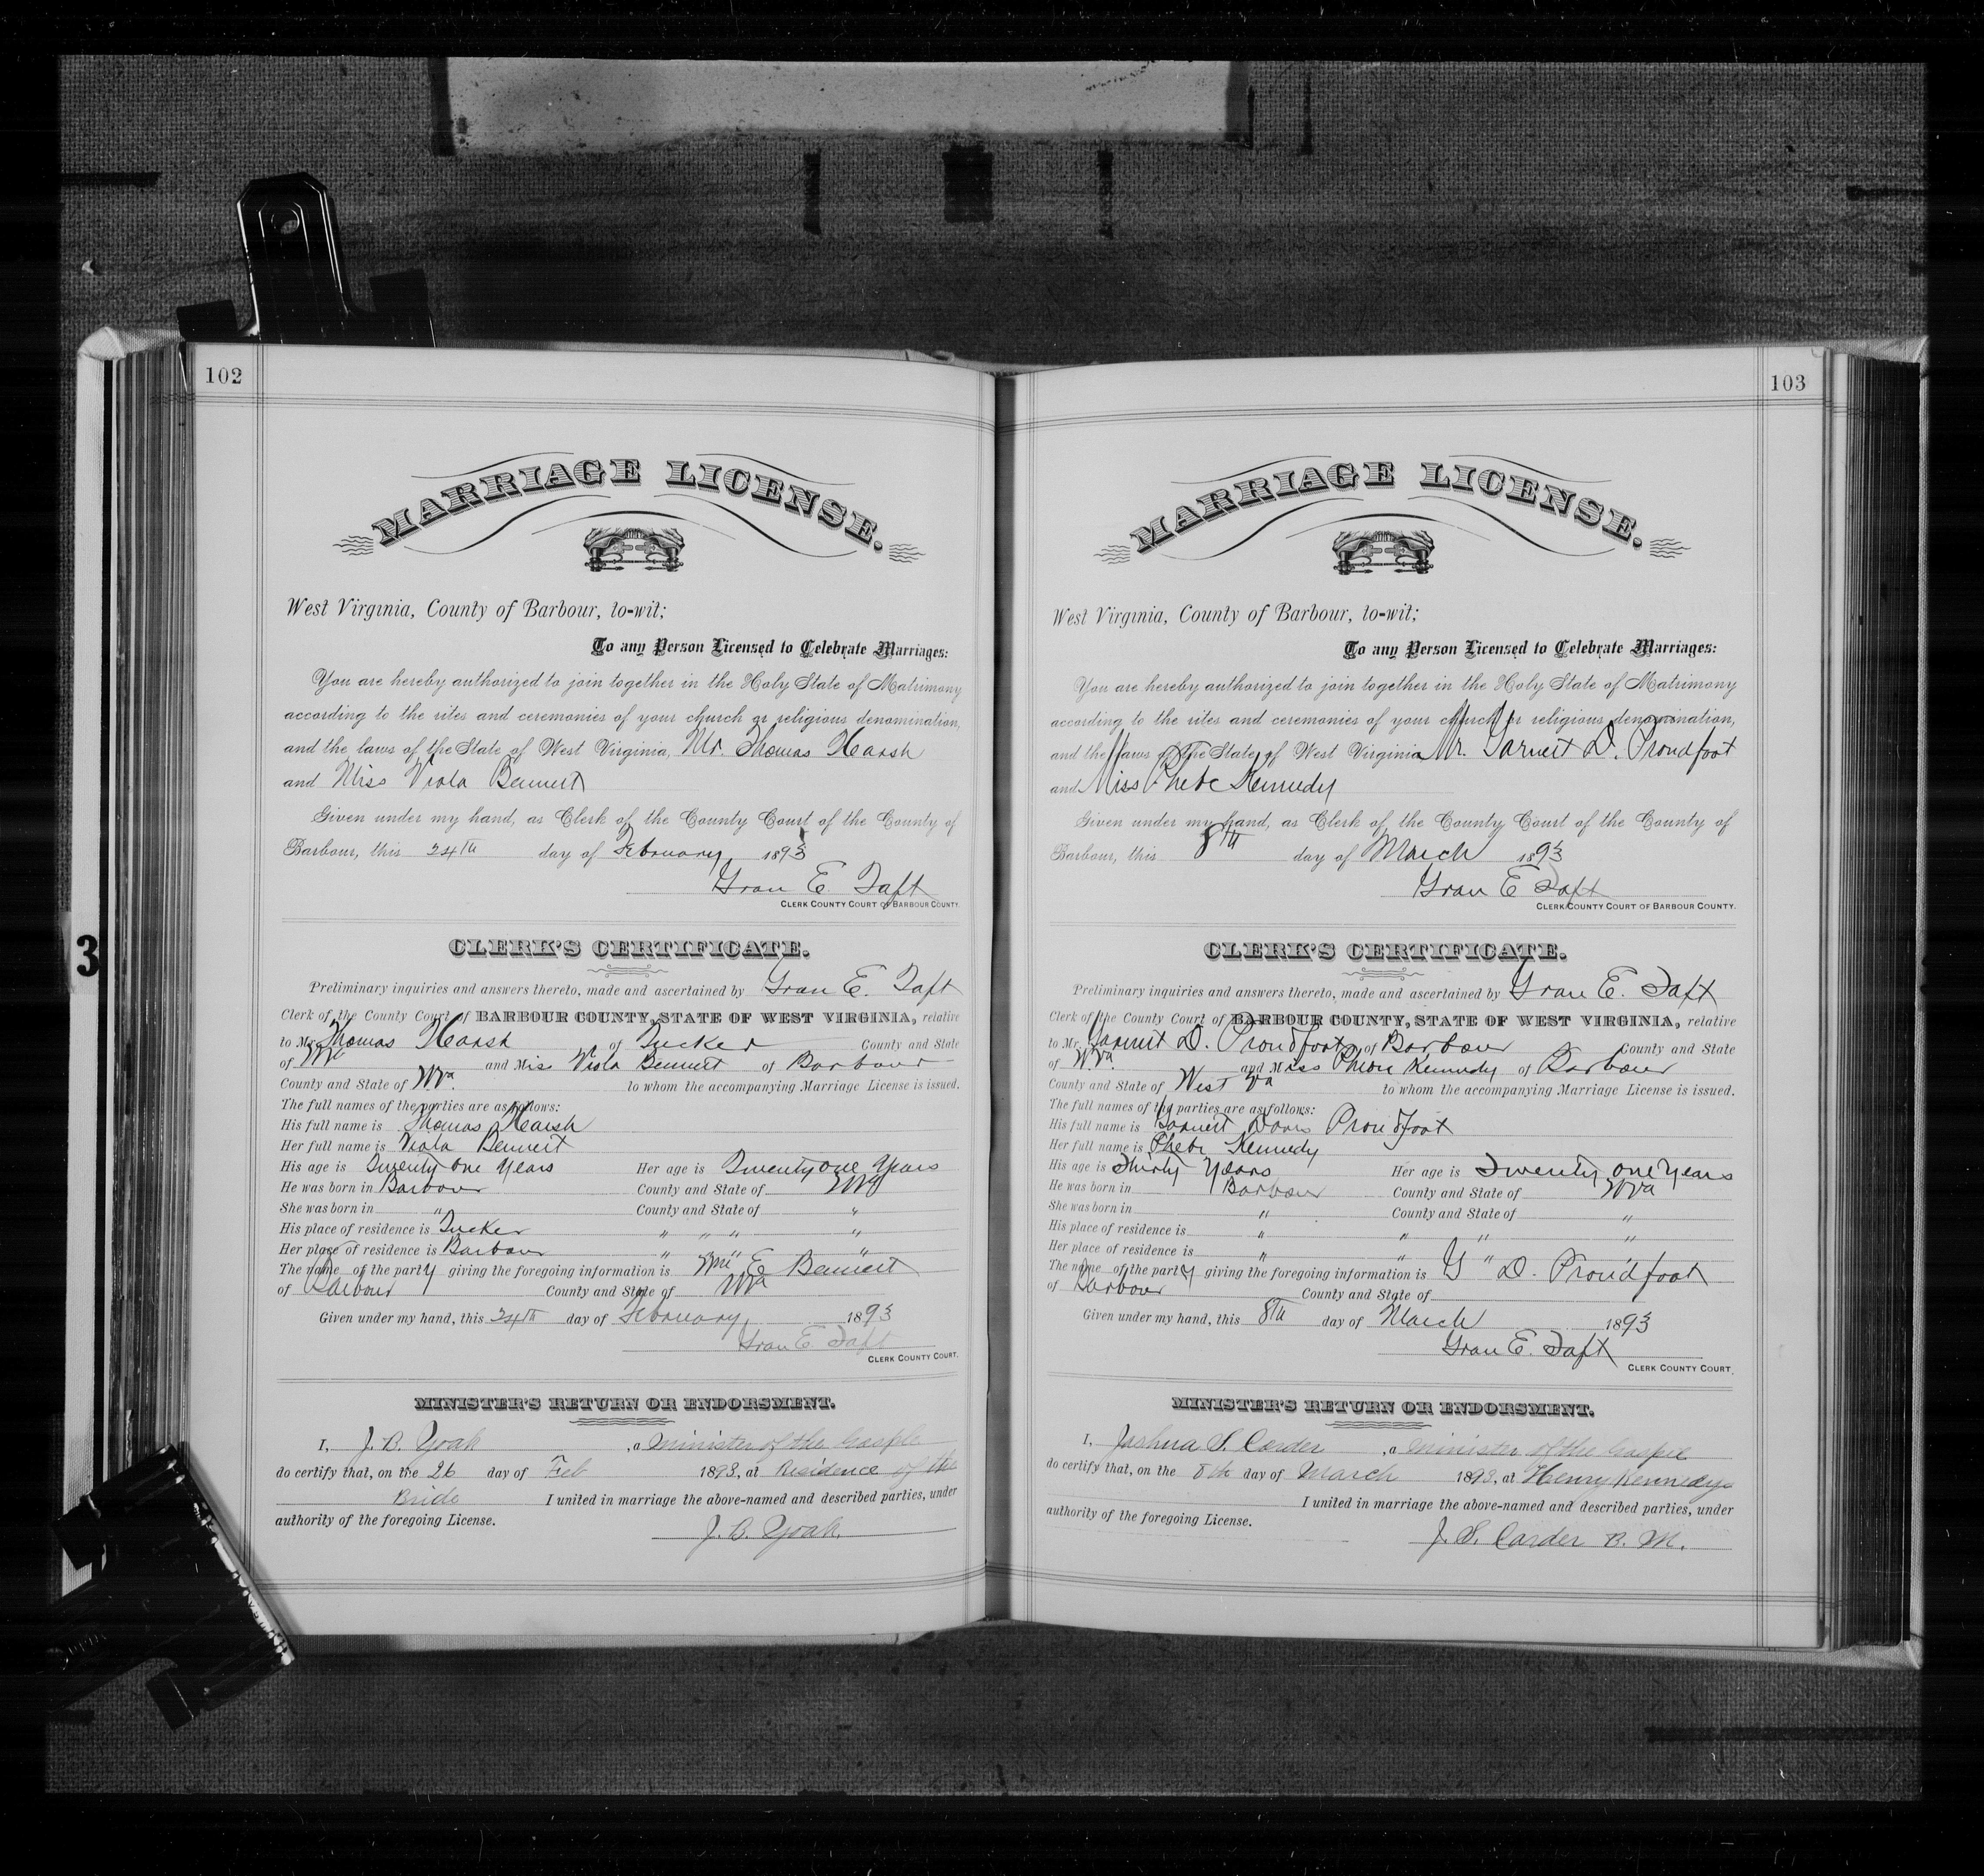 102
MARRIAGE LICENSE.
West Virginia, County of Barbour, to-wit;
To any Person Licensed to Celebrate Marriages:
You are hereby authorized to join together in the Holy State of Matrimony
according to the rites and ceremonies of your church or religious denomination,
and the laws of the State of West Virginia, Mr. Thomas Harsh
and Miss Viola Bennett
Given under my hand, as Clerk of the County Court of the County of
Barbour, this 24th day of February 1893
Gran E. Taft
CLERK COUNTY COURT OF BARBOUR COUNTY.
CLERK'S CERTIFICATE.
Preliminary inquiries and answers thereto, made and ascertained by Gran E. Taft
Clerk of the County Court of BARBOUR COUNTY, STATE OF WEST VIRGINIA, relative
to Mr. Thomas Harsh of Tucker County and State
of WVa and Miss Viola Bennett of Barbour
County and State of WVa. to whom the accompanying Marriage License is issued.
The full names of the parties are as follows:
His full name is Thomas Harsh
Her full name is Viola Bennett
His age is Twenty one Years Her age is Twenty one Years
He was born in Barbour County and State of WVa
She was born in " County and State of "
His place of residence is Tucker " " " "
Her place of residence is Barbour " " " "
The name of the party giving the foregoing information is Wm E Bennett
of Barbour County and State of WVa
Given under my hand, this 24th day of February, 1893
Gran E. Taft
CLERK COUNTY COURT.
MINISTER'S RETURN OR ENDORSMENT.
I, J. B. Yoak, a Minister of the Gosple
do certify that, on the 26 day of Feb 1893, at Residence of the
Bride I united in marriage the above-named and described parties, under
authority of the foregoing License.
J. B. Yoak.
103
MARRIAGE LICENSE.
West Virginia, County of Barbour, to-wit;
To any Person Licensed to Celebrate Marriages:
You are hereby authorized to join together in the Holy State of Matrimony
according to the rites and ceremonies of your church or religious denomination,
and the laws of the State of West Virginia Mr. Garnett D. Proudfoot
and Miss Phebe Kennedy
Given under my hand, as Clerk of the County Court of the County of
Barbour, this 8th day of March 1893
Gran E Taft
CLERK COUNTY COURT OF BARBOUR COUNTY.
CLERK'S CERTIFICATE.
Preliminary inquiries and answers thereto, made and ascertained by Gran E. Taft
Clerk of the County Court of BARBOUR COUNTY, STATE OF WEST VIRGINIA, relative
to Mr. Garnett D. Proudfoot of Barbour County and State
of W.Va. and Miss Phebe Kennedy of Barbour
County and State of West Va to whom the accompanying Marriage License is issued.
The full names of the parties are as follows:
His full name is Garnett Davis Proudfoot
Her full name is Phebe Kennedy
His age is Thirty Years Her age is Twenty one Years
He was born in Barbour County and State of WVa
She was born in " County and State of "
His place of residence is " " " "
Her place of residence is " " " "
The name of the party giving the foregoing information is G D. Proudfoot
of Barbour County and State of
Given under my hand, this 8th day of March 1893
Gran E. Taft
CLERK COUNTY COURT.
MINISTER'S RETURN OR ENDORSMENT.
I, Joshua S. Carder, a Minister of the Gospel
do certify that, on the 8th day of March 1893, at Henry Kennedys
I united in marriage the above-named and described parties, under
authority of the foregoing License.
J. S. Carder B. M.
3